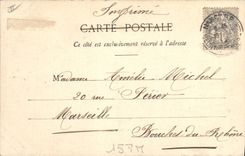 Imprimé
CARTE POSTALE
Ce côté est exclusivement réservé à l'adresse
Madame Emilie Michel
20 rue Périer
Marseille
Bouches du Rhône